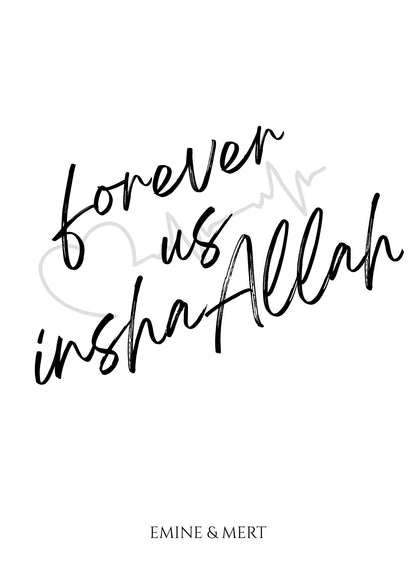 forever
us
inshaAllah
EMINE & MERT